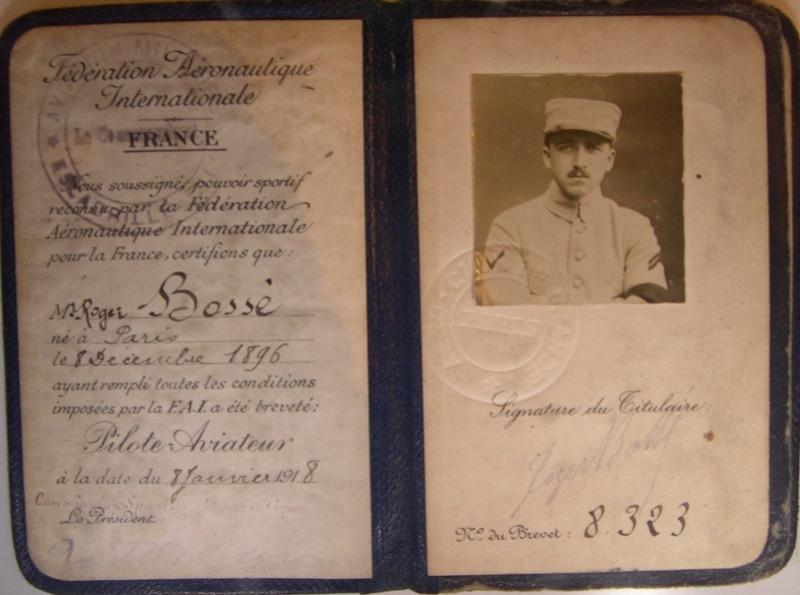 Fédération Aéronautique
Internationale
FRANCE
Nous soussignés, pouvoir sportif
reconnu par la Fédération
Aéronautique Internationale
pour la France, certifions que:
Mr Roger Bossé
né à Paris
le 8 Décembre 1896
ayant rempli toutes les conditions
imposées par la F.A.I. a été breveté:
Pilote-Aviateur
à la date du 8 Janvier 1918
Le Président:
Signature du Titulaire:
No du Brevet: 8.323